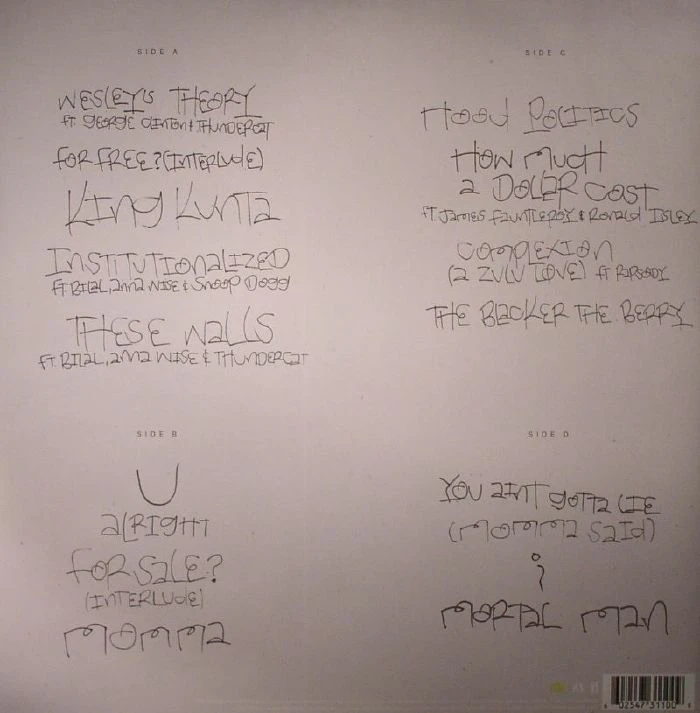 SIDE A
WESLEY'S THEORY
FT GEORGE CLINTON & THUNDERCAT
FOR FREE? (INTERLUDE)
KING KUNTA
INSTITUTIONALIZED
FT BILAL, ANNA WISE & SNOOP DOGG
THESE WALLS
FT BILAL, ANNA WISE & THUNDERCAT
SIDE B
U
ALRIGHT
FOR SALE?
(INTERLUDE)
MOMMA
SIDE C
HOOD POLITICS
HOW MUCH
A DOLLAR COST
FT JAMES FAUNTLEROY & RONALD ISLEY
COMPLEXION
(A ZULU LOVE) FT RAPSODY
THE BLACKER THE BERRY
SIDE D
YOU AINT GOTTA LIE
(MOMMA SAID)
i
MORTAL MAN